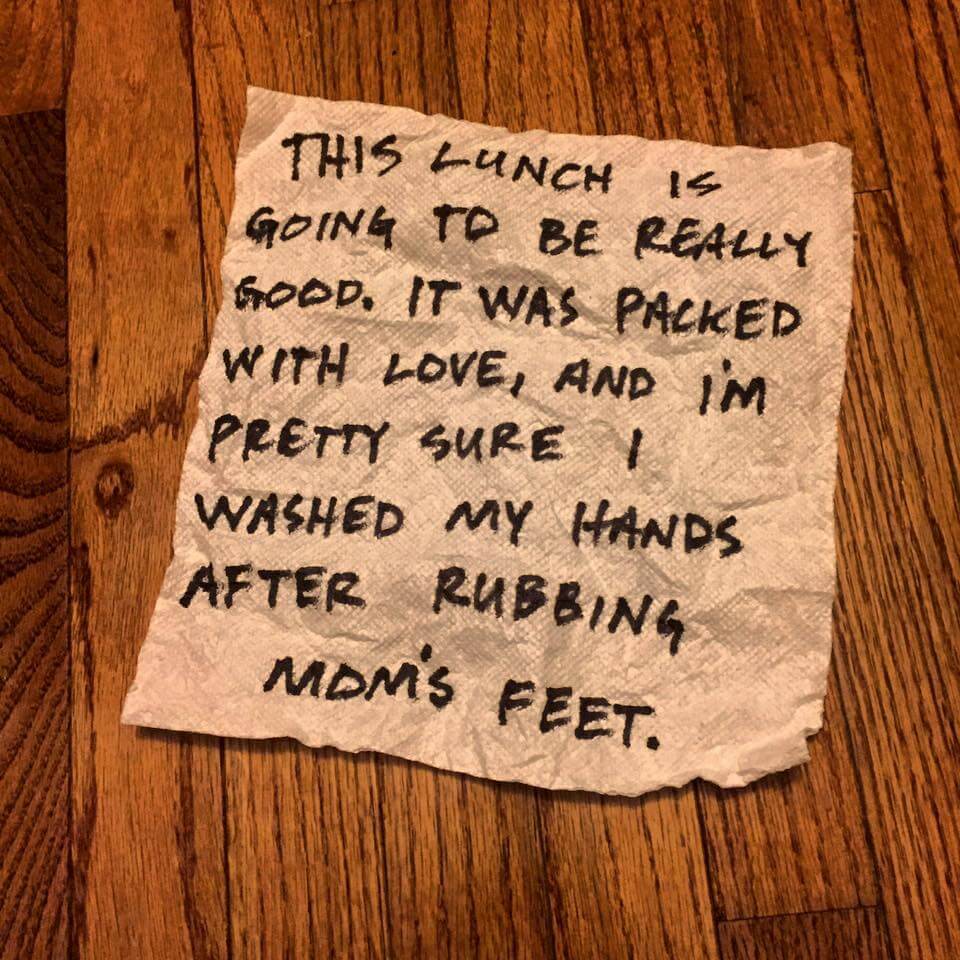 THIS LUNCH IS
GOING TO BE REALLY
GOOD. IT WAS PACKED
WITH LOVE, AND I'M
PRETTY SURE I
WASHED MY HANDS
AFTER RUBBING
MOM'S FEET.